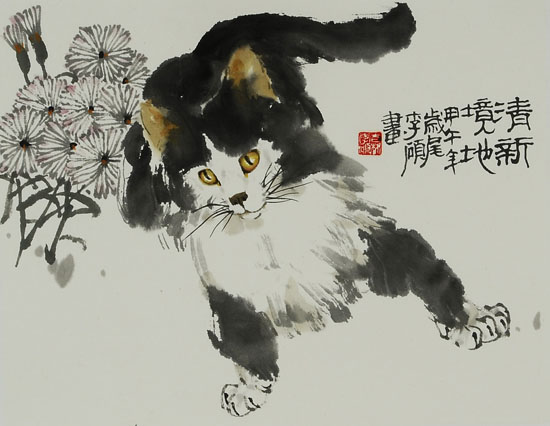 清新
境地
甲午年
歲尾
李碩
畫